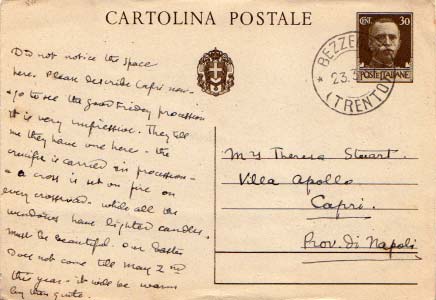 CARTOLINA POSTALE
CENT. 30
POSTE ITALIANE
BEZZE
23.3
(TRENTO)
Did not notice the space
here. Please describe Capri now -
go to see the Good Friday procession
it is very impressive. They tell
me they have one here - the
crucifix is carried in procession -
a cross is set on fire on
every crossroad - while all the
windows have lighted candles.
must be beautiful. Our Easter
does not come till May 2nd
this year - it will be warm
by then quite.
Mrs Theresa Stuart.
Villa Apollo
Capri.
Prov. di Napoli